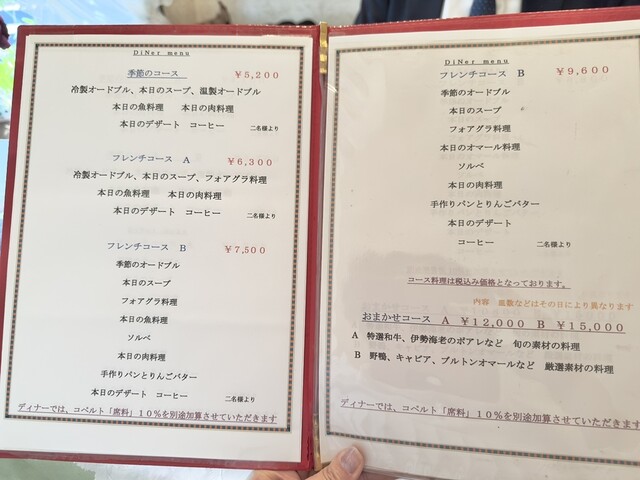 DiNer menu
季節のコース ￥5,200
冷製オードブル、本日のスープ、温製オードブル
本日の魚料理 本日の肉料理
本日のデザート コーヒー 二名様より
フレンチコース A ￥6,300
冷製オードブル、本日のスープ、フォアグラ料理
本日の魚料理 本日の肉料理
本日のデザート コーヒー 二名様より
フレンチコース B ￥7,500
季節のオードブル
本日のスープ
フォアグラ料理
本日の魚料理
ソルベ
本日の肉料理
手作りパンとりんごバター
本日のデザート コーヒー 二名様より
ディナーでは、コペルト「席料」１０％を別途加算させていただきます
DiNer menu
フレンチコース B ￥9,600
季節のオードブル
本日のスープ
フォアグラ料理
本日のオマール料理
ソルベ
本日の肉料理
手作りパンとりんごバター
本日のデザート
コーヒー 二名様より
コース料理は税込み価格となっております。
内容 皿数などはその日により異なります
おまかせコース A ￥12,000 B ￥15,000
A 特選和牛、伊勢海老のポアレなど 旬の素材の料理
B 野鴨、キャビア、ブルトンオマールなど 厳選素材の料理
ディナーでは、コペルト「席料」１０％を別途加算させていただきます